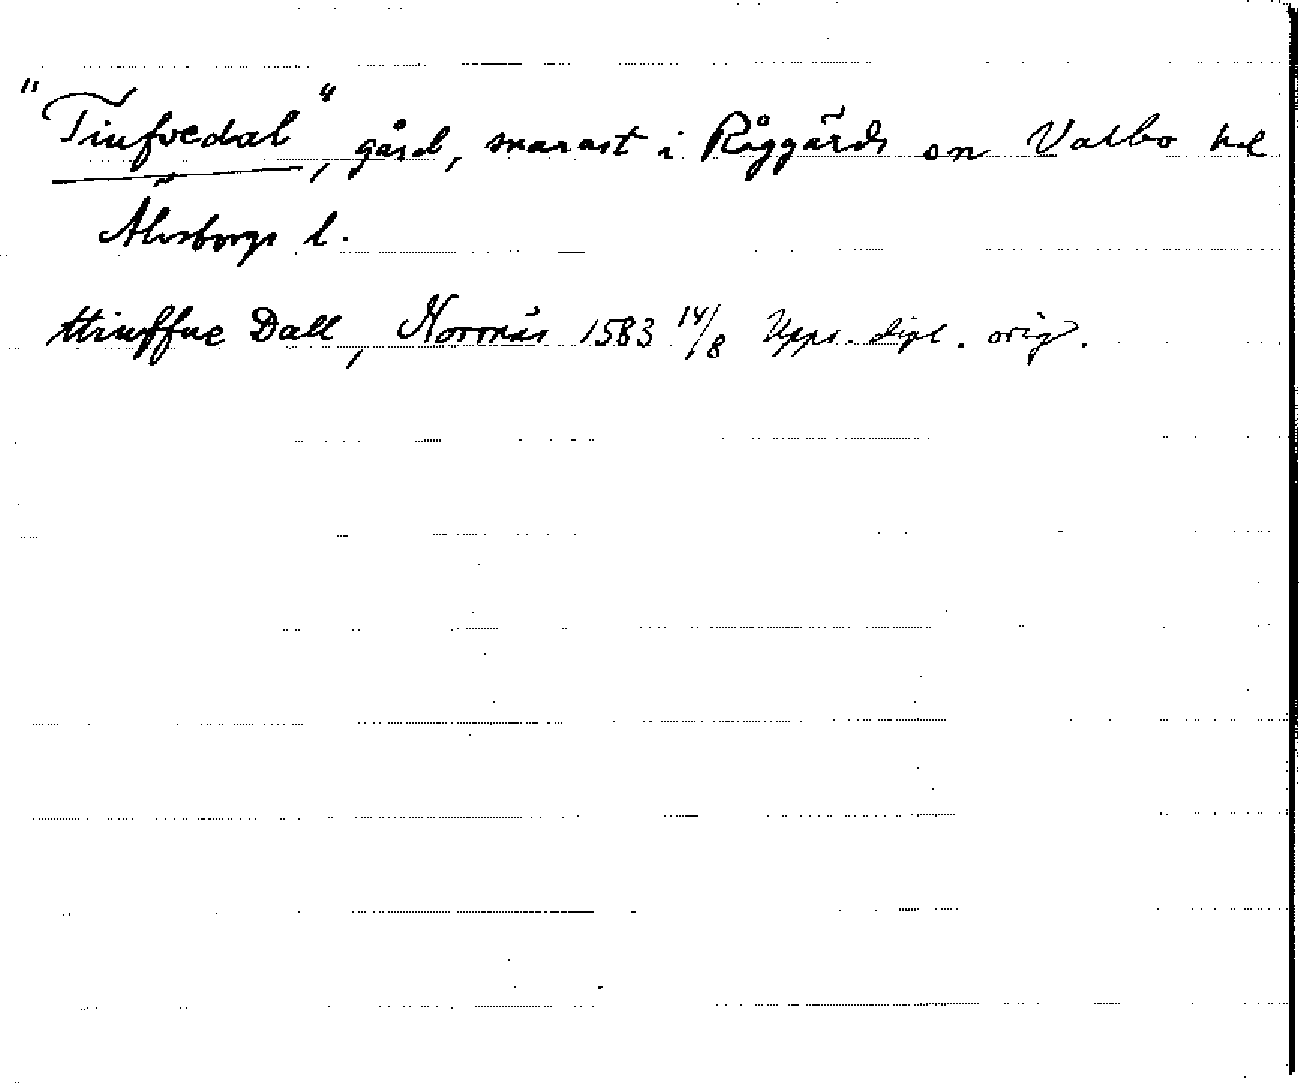 "Tiufvedal", gård, snarast i Råggärds sn Valbo hd
Älvsborgs l.
ttiuffue Dall, Nornäs 1583 14/8 Upps. dipl. orig.